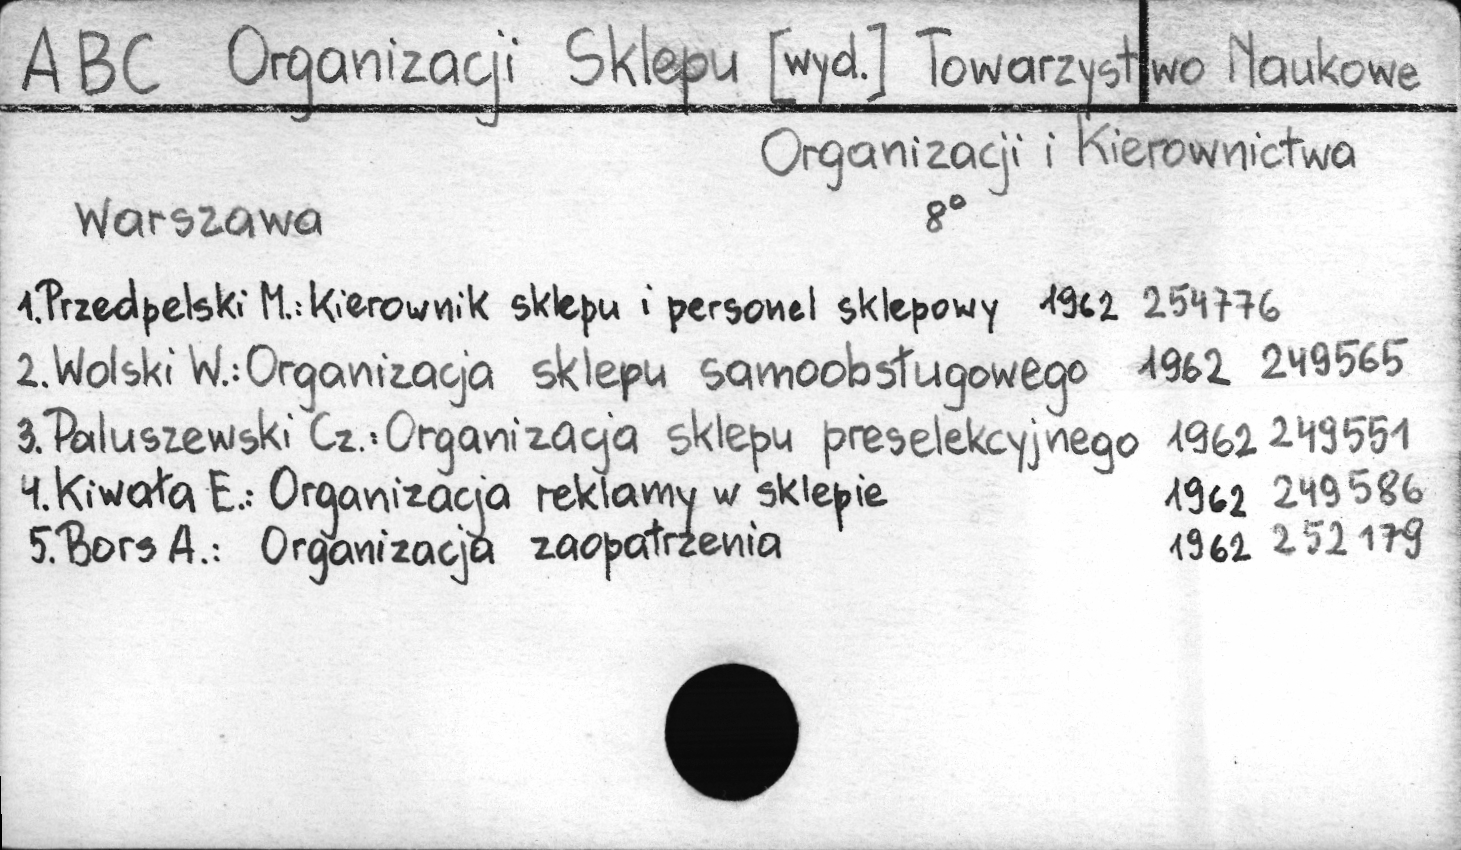 ABC Organizacji Sklepu [wyd.] Towarzystwo Naukowe
Organizacji i Kierownictwa
Warszawa 8°
1. Przedpelski M.: Kierownik sklepu i personel sklepowy 1962 254776
2. Wolski W.: Organizacja sklepu samoobsługowego 1962 249565
3. Paluszewski Cz.: Organizacja sklepu preselekcyjnego 1962 249551
4. Kiwała E.: Organizacja reklamy w sklepie 1962 249586
5. Bors A.: Organizacja zaopatrzenia 1962 252179